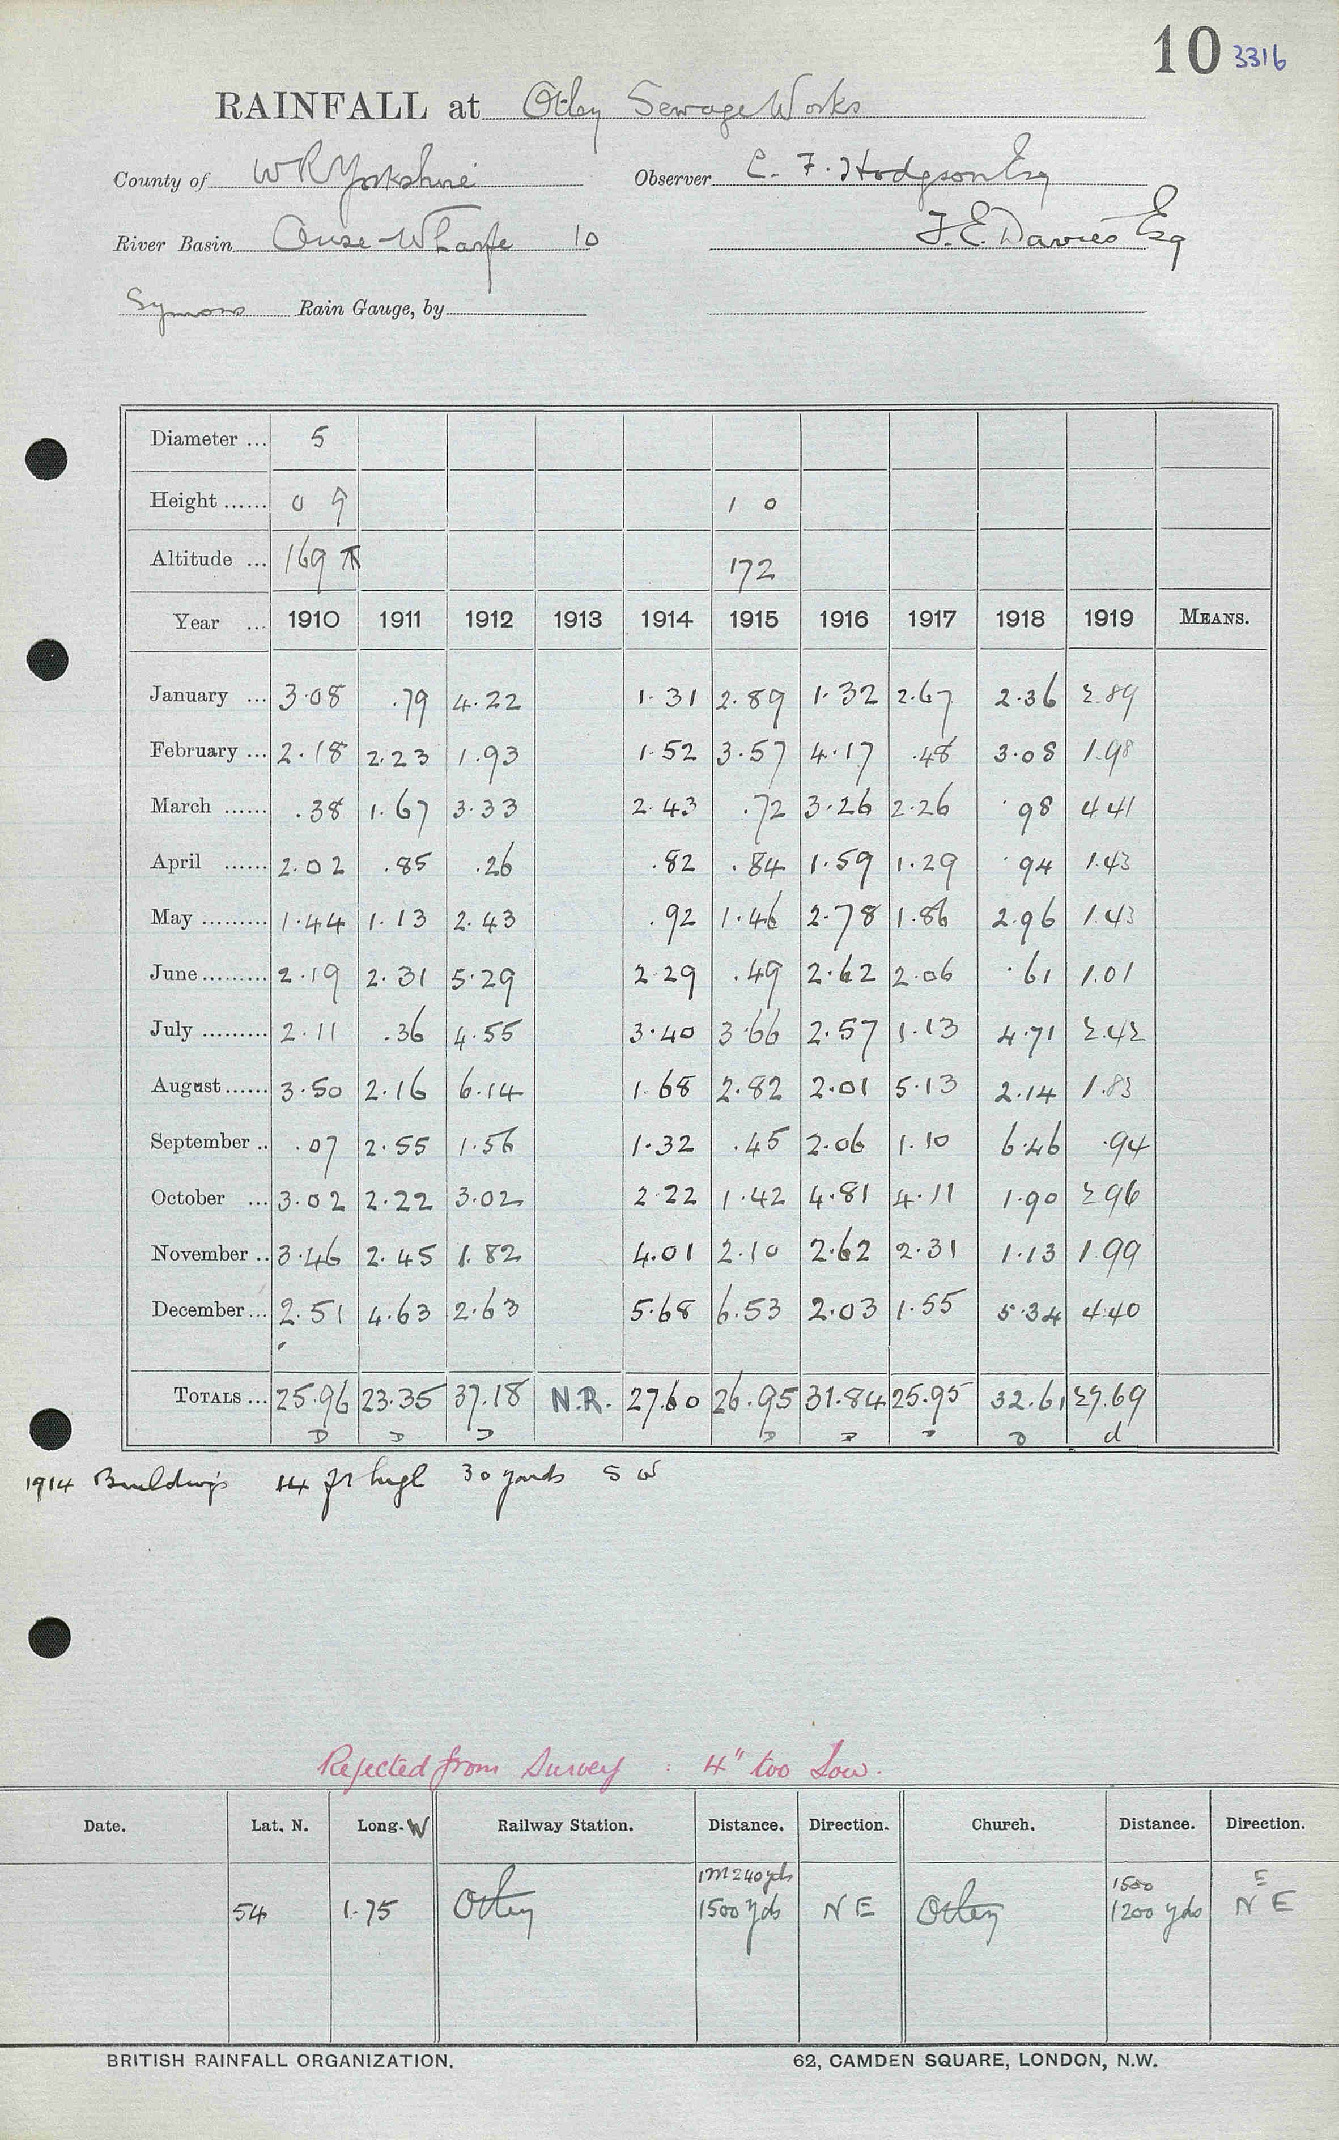 10 3316
RAINFALL at Otley Sewage Works
County of W R Yorkshire Observer C. F. Hodgson Esq
River Basin Ouse-Wharfe 10 F. E. Davies Esq
Symons Rain Gauge, by
Diameter ... 5
Height ...... 0 9 1 0
Altitude ... 169 172
Year ... 1910 1911 1912 1913 1914 1915 1916 1917 1918 1919 MEANS.
January ... 3.08 .79 4.22 1.31 2.89 1.32 2.67 2.36 2.89
February ... 2.18 2.23 1.93 1.52 3.57 4.17 .48 3.08 1.98
March ...... .38 1.67 3.33 2.43 .72 3.26 2.26 .98 4.41
April ...... 2.02 .85 .26 .82 .84 1.59 1.29 .94 1.43
May ......... 1.44 1.13 2.43 .92 1.46 2.78 1.86 2.96 1.43
June ......... 2.19 2.31 5.29 2.29 .49 2.62 2.06 .61 1.01
July ......... 2.11 .36 4.55 3.40 3.66 2.57 1.13 4.71 2.42
August ...... 3.50 2.16 6.14 1.68 2.82 2.01 5.13 2.14 1.83
September .. .07 2.55 1.56 1.32 .45 2.06 1.10 6.46 .94
October ... 3.02 2.22 3.02 2.22 1.42 4.81 4.11 1.90 2.96
November .. 3.46 2.45 1.82 4.01 2.10 2.62 2.31 1.13 1.99
December ... 2.51 4.63 2.63 5.68 6.53 2.03 1.55 5.34 4.40
TOTALS ... 25.96 23.35 37.18 N.R. 27.60 26.95 31.84 25.95 32.61 27.69
D D D D D D D d
1914 Buildings 14 ft high 30 yards S W
Rejected from Survey : 4" too Low.
Date. Lat. N. Long. W Railway Station. Distance. Direction. Church. Distance. Direction.
1m 240 yds 1500 E
54 1.75 Otley 1500 yds N E Otley 1200 yds N E
BRITISH RAINFALL ORGANIZATION. 62, CAMDEN SQUARE, LONDON, N.W.